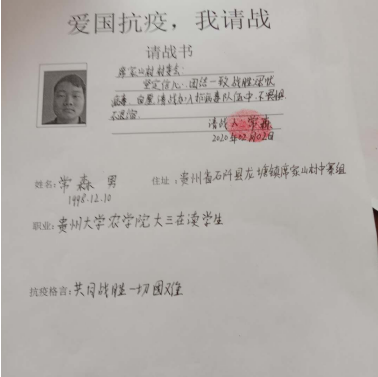 爱国抗疫，我请战
请战书
席家山村村委会：
坚定信心、团结一致、战胜冠状
病毒、自愿请战加入抗病毒队伍中、不畏艰
不退缩
请战人：常森
2020年02月02日
姓名：常森 男 住址：贵州省石阡县龙塘镇席家山村中寨组
1998.12.10
职业：贵州大学农学院大三在读学生
抗疫格言：共同战胜一切困难